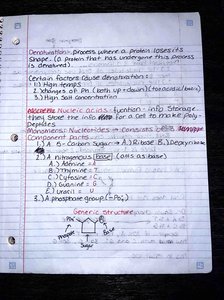 Denaturation: process where a protein loses its
shape. (A protein that has undergone this process
is denatured).
Certain factors cause denaturation:
1.) High temps
2.) Changes of PH (both up + down) (too acidic/basic)
3.) High Salt concentration
Nucleic acids: function - info storage
they store the info for a cell to make poly-
peptides.
Monomers: Nucleotides → Consists
Component Parts:
1.) A 5-Carbon Sugar → A.) Ribose B.) Deoxyribose
2.) A nitrogenous base (OH's as base)
A.) Adenine = A
B.) Thymine = T
C.) Cytosine = C
D.) Guanine = G
E.) Uracil = U
3.) A phosphate group (-PO4)
Generic Structure
Phosphate
Sugar
Base